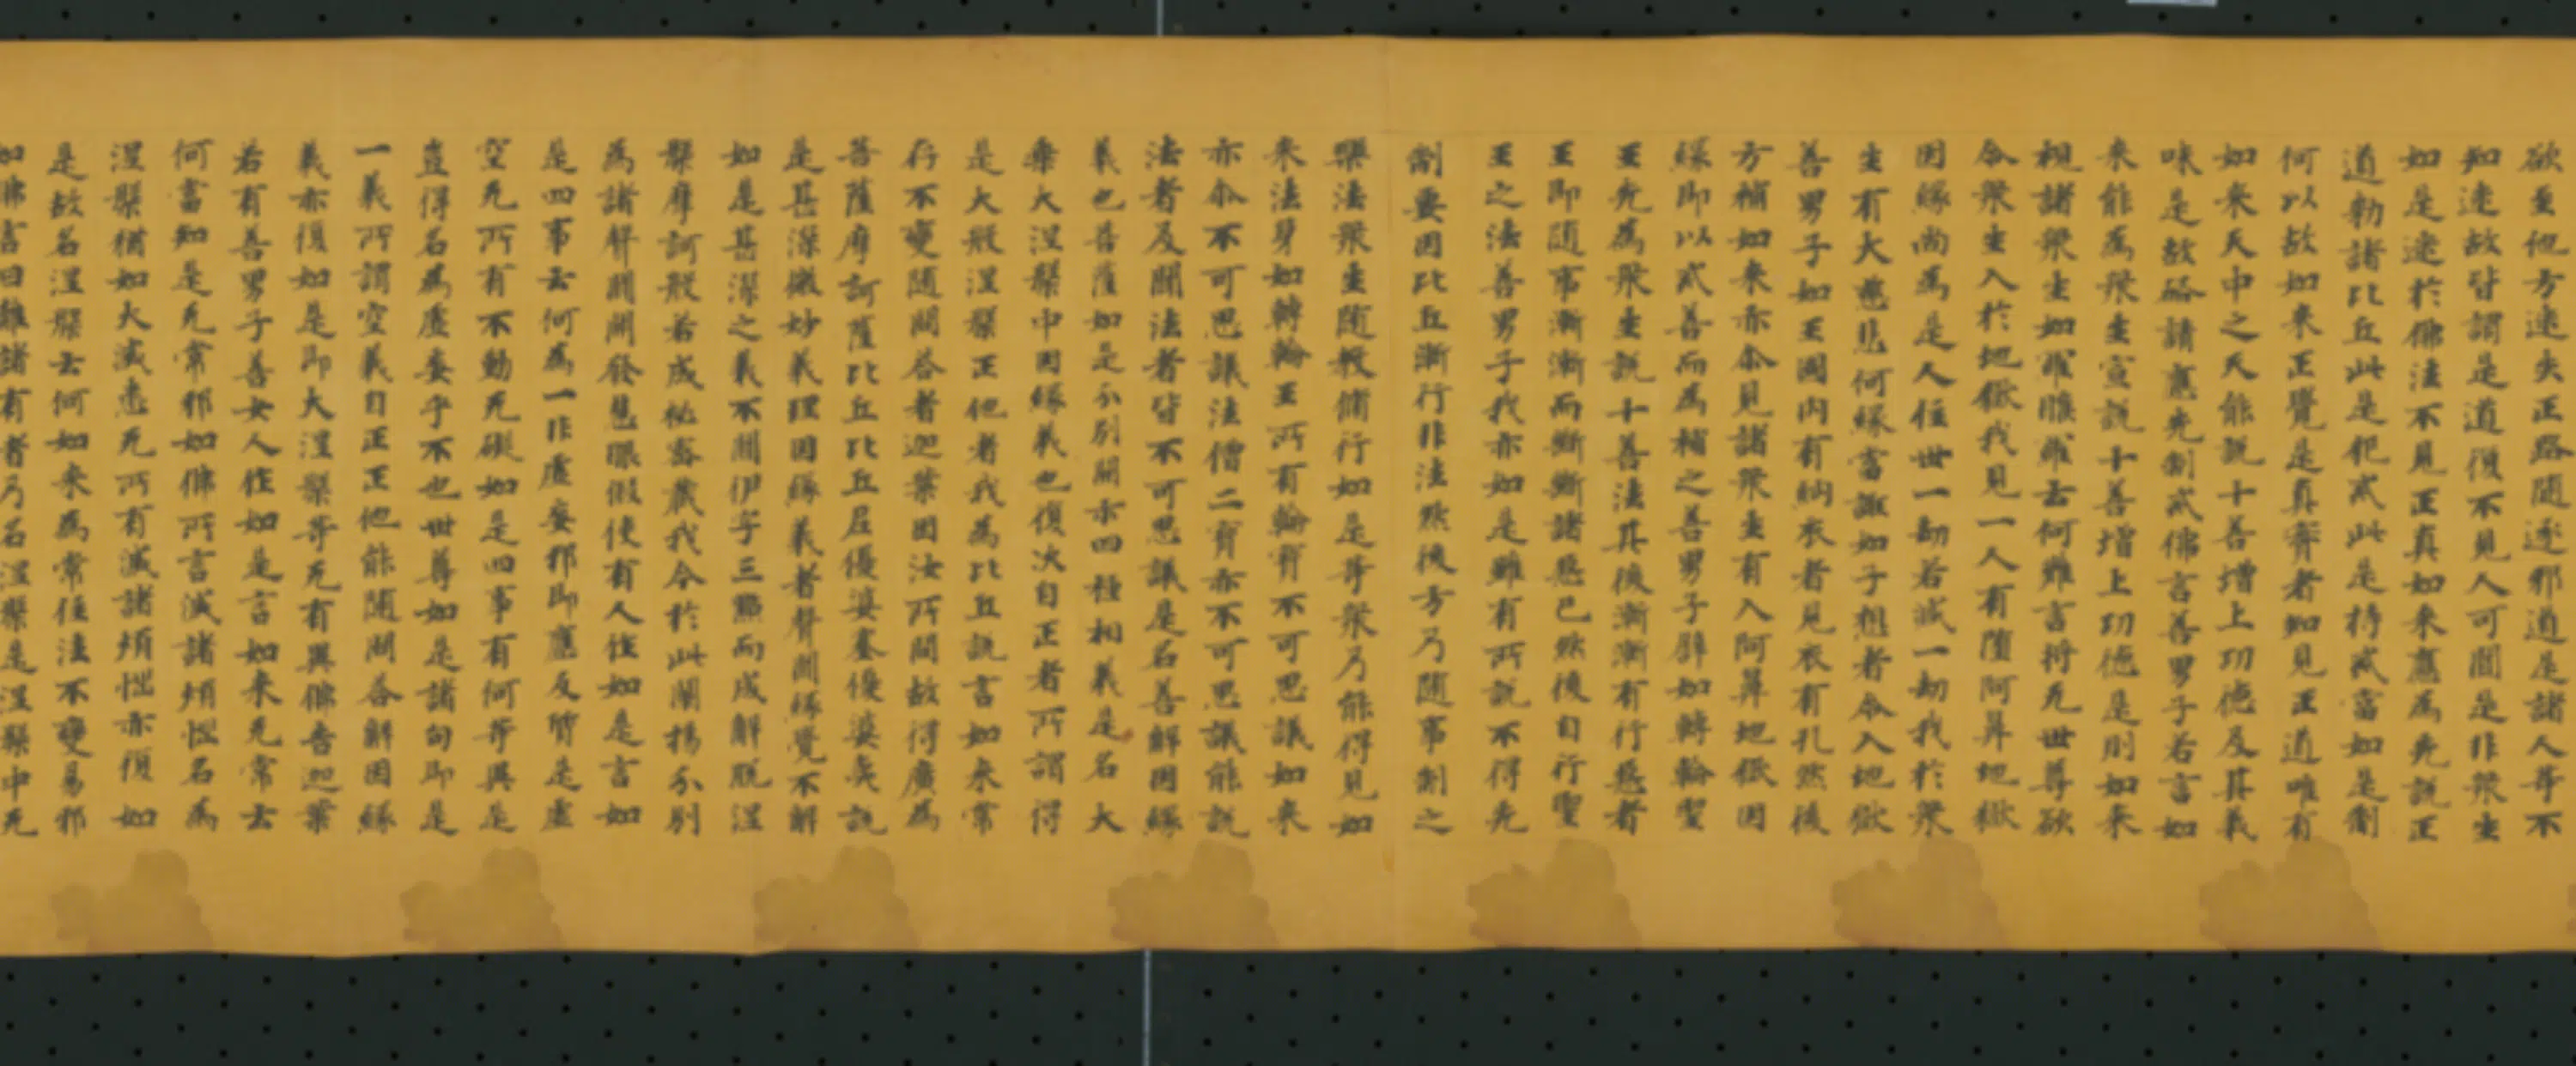 欲至他方迷失正路随逐邪道是諸人等不
知迷故皆謂是道復不見人可問是非衆生
如是迷於佛法不見正真如来應為先說正
道勑諸比丘此是犯戒此是持戒當如是制
何以故如来正覺是真實者知見正道唯有
如来天中之天能說十善增上功德及其義
味是故啓請應先制戒佛言善男子若言如
来能為衆生宣說十善增上功德是則如来
視諸衆生如羅睺羅云何難言將无世尊欲
令衆生入於地獄我見一人有墮阿鼻地獄
因緣尚為是人住世一劫若減一劫我於衆
生有大慈悲何緣當誑如子想者令入地獄
善男子如王國內有納衣者見衣有孔然後
方補如来亦尒見諸衆生有入阿鼻地獄因
緣即以戒善而為補之善男子辟如轉輪聖
王先為衆生說十善法其後漸漸有行惡者
王即随事漸漸而斷斷諸惡已然後自行聖
王之法善男子我亦如是雖有所說不得先
制要因比丘漸行非法然後方乃随事制之
樂法衆生随教脩行如是等衆乃能得見如
来法身如轉輪王所有輪寶不可思議如来
亦尒不可思議法僧二寶亦不可思議能說
法者及聞法者皆不可思議是名善解因緣
義也菩薩如是分別開示四種相義是名大
乗大涅槃中因緣義也復次自正者所謂得
是大般涅槃正他者我為比丘說言如来常
存不變随問答者迦葉因汝所問故得廣為
菩薩摩訶薩比丘比丘尼優婆塞優婆夷說
是甚深微妙義理因緣義者聲聞緣覺不解
如是甚深之義不聞伊字三點而成解脫涅
槃摩訶般若成祕密藏我今於此闡揚分別
為諸聲聞開發慧眼假使有人作如是言如
是四事云何為一非虛妄耶即應反質是虛
空无所有不動无礙如是四事有何等異是
豈得名為虛妄乎不也世尊如是諸句即是
一義所謂空義自正正他能随問答解因緣
義亦復如是即大涅槃等无有異佛告迦葉
若有善男子善女人作如是言如来无常云
何當知是无常耶如佛所言滅諸煩惱名為
涅槃猶如火滅悉无所有滅諸煩惱亦復如
是故名涅槃云何如来為常住法不變易耶
如佛言曰離諸有者乃名涅槃是涅槃中无